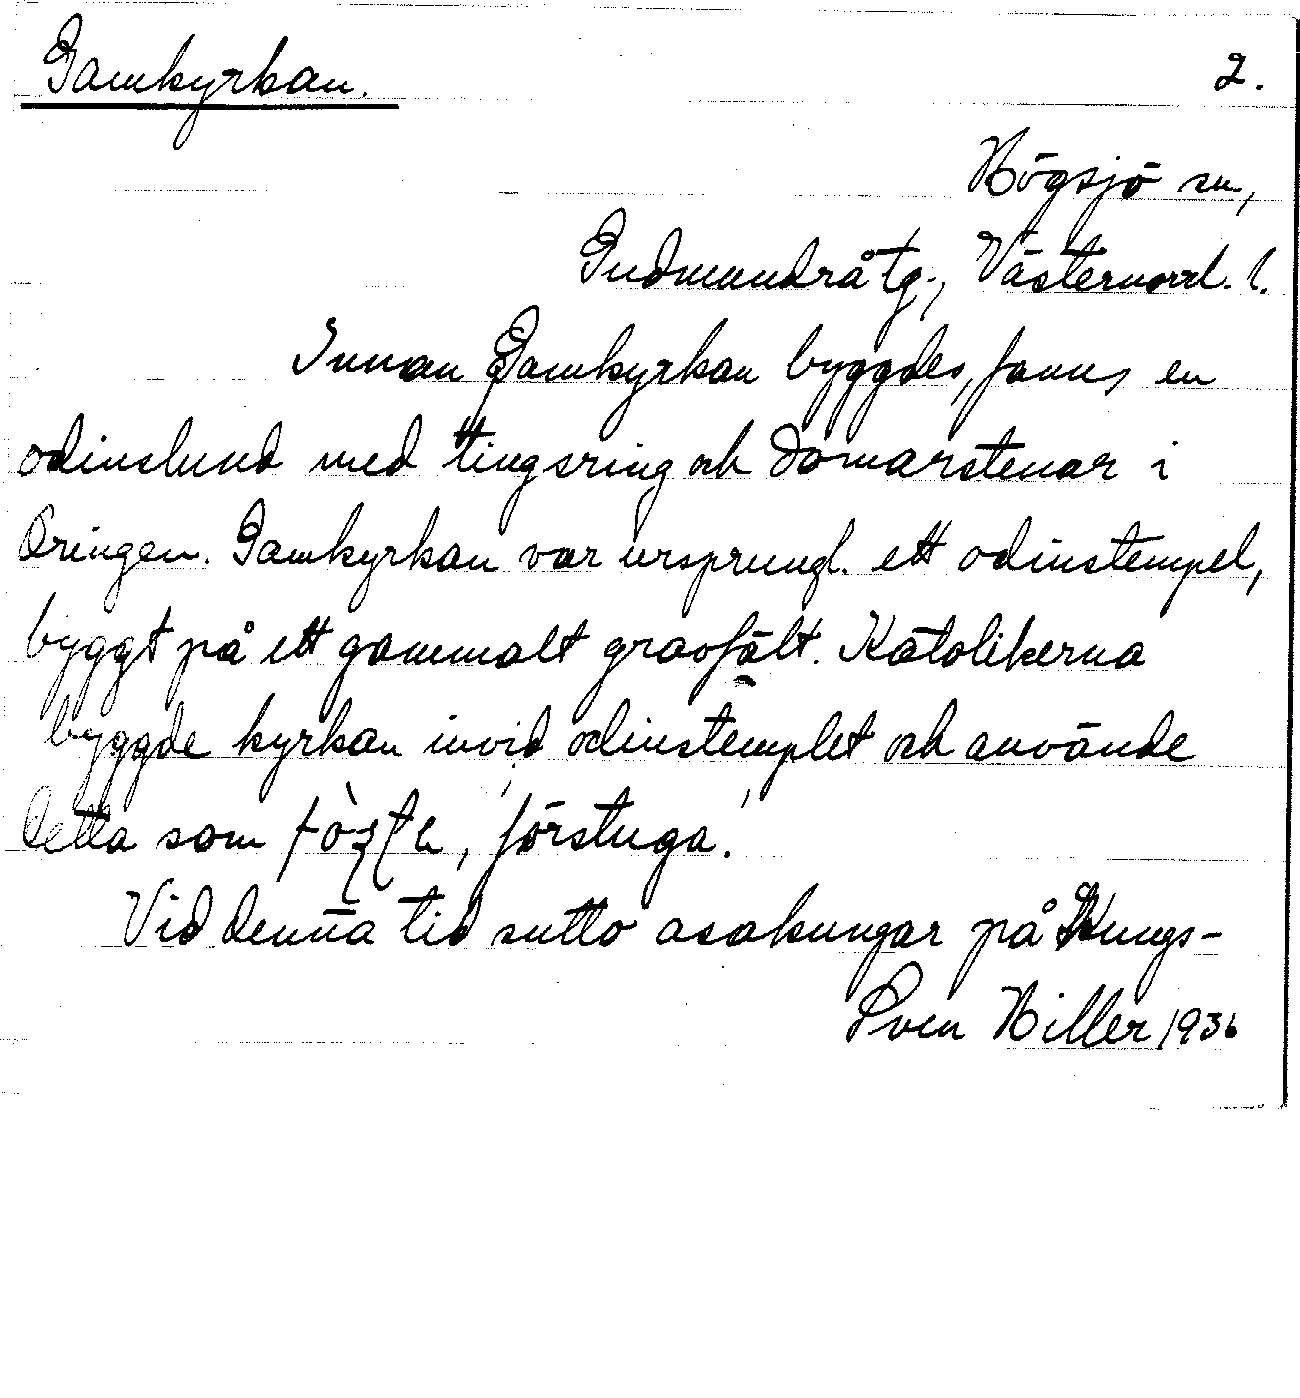 Gamkyrkan. 2.
Högsjö sn,
Gudmundrå tg., Västernorrl. l.
Innan Gamkyrkan byggdes, fanns en
odinslund med tingsring och domarstenar i
Öringen. Gamkyrkan var ursprungl. ett odinstempel,
byggt på ett gammalt gravfält. Katolikerna
byggde kyrkan invid odinstemplet och använde
detta som 'förstuga'.
Vid denna tid sutto asakungar på Kungs-
Sven Hiller 1936